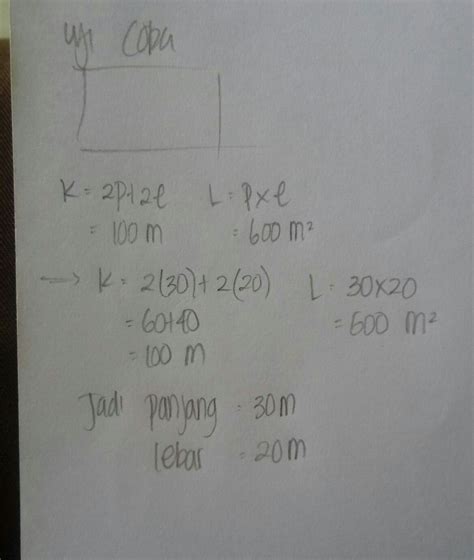 Uji Coba
K = 2p+2l L = p x l
= 100 m = 600 m²
→ K = 2(30)+2(20) L = 30x20
= 60+40 = 600 m²
= 100 m
Jadi panjang = 30m
lebar = 20m